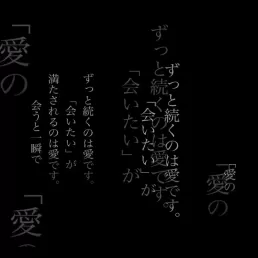 「愛の
愛の
ずっと続くのは愛です。
「会いたい」が
ずっと続くのは愛です
「会いたい」が
ずっと続くのは愛です。
「会いたい」が
満たされるのは愛です。
会うと一瞬で
「愛の
「愛